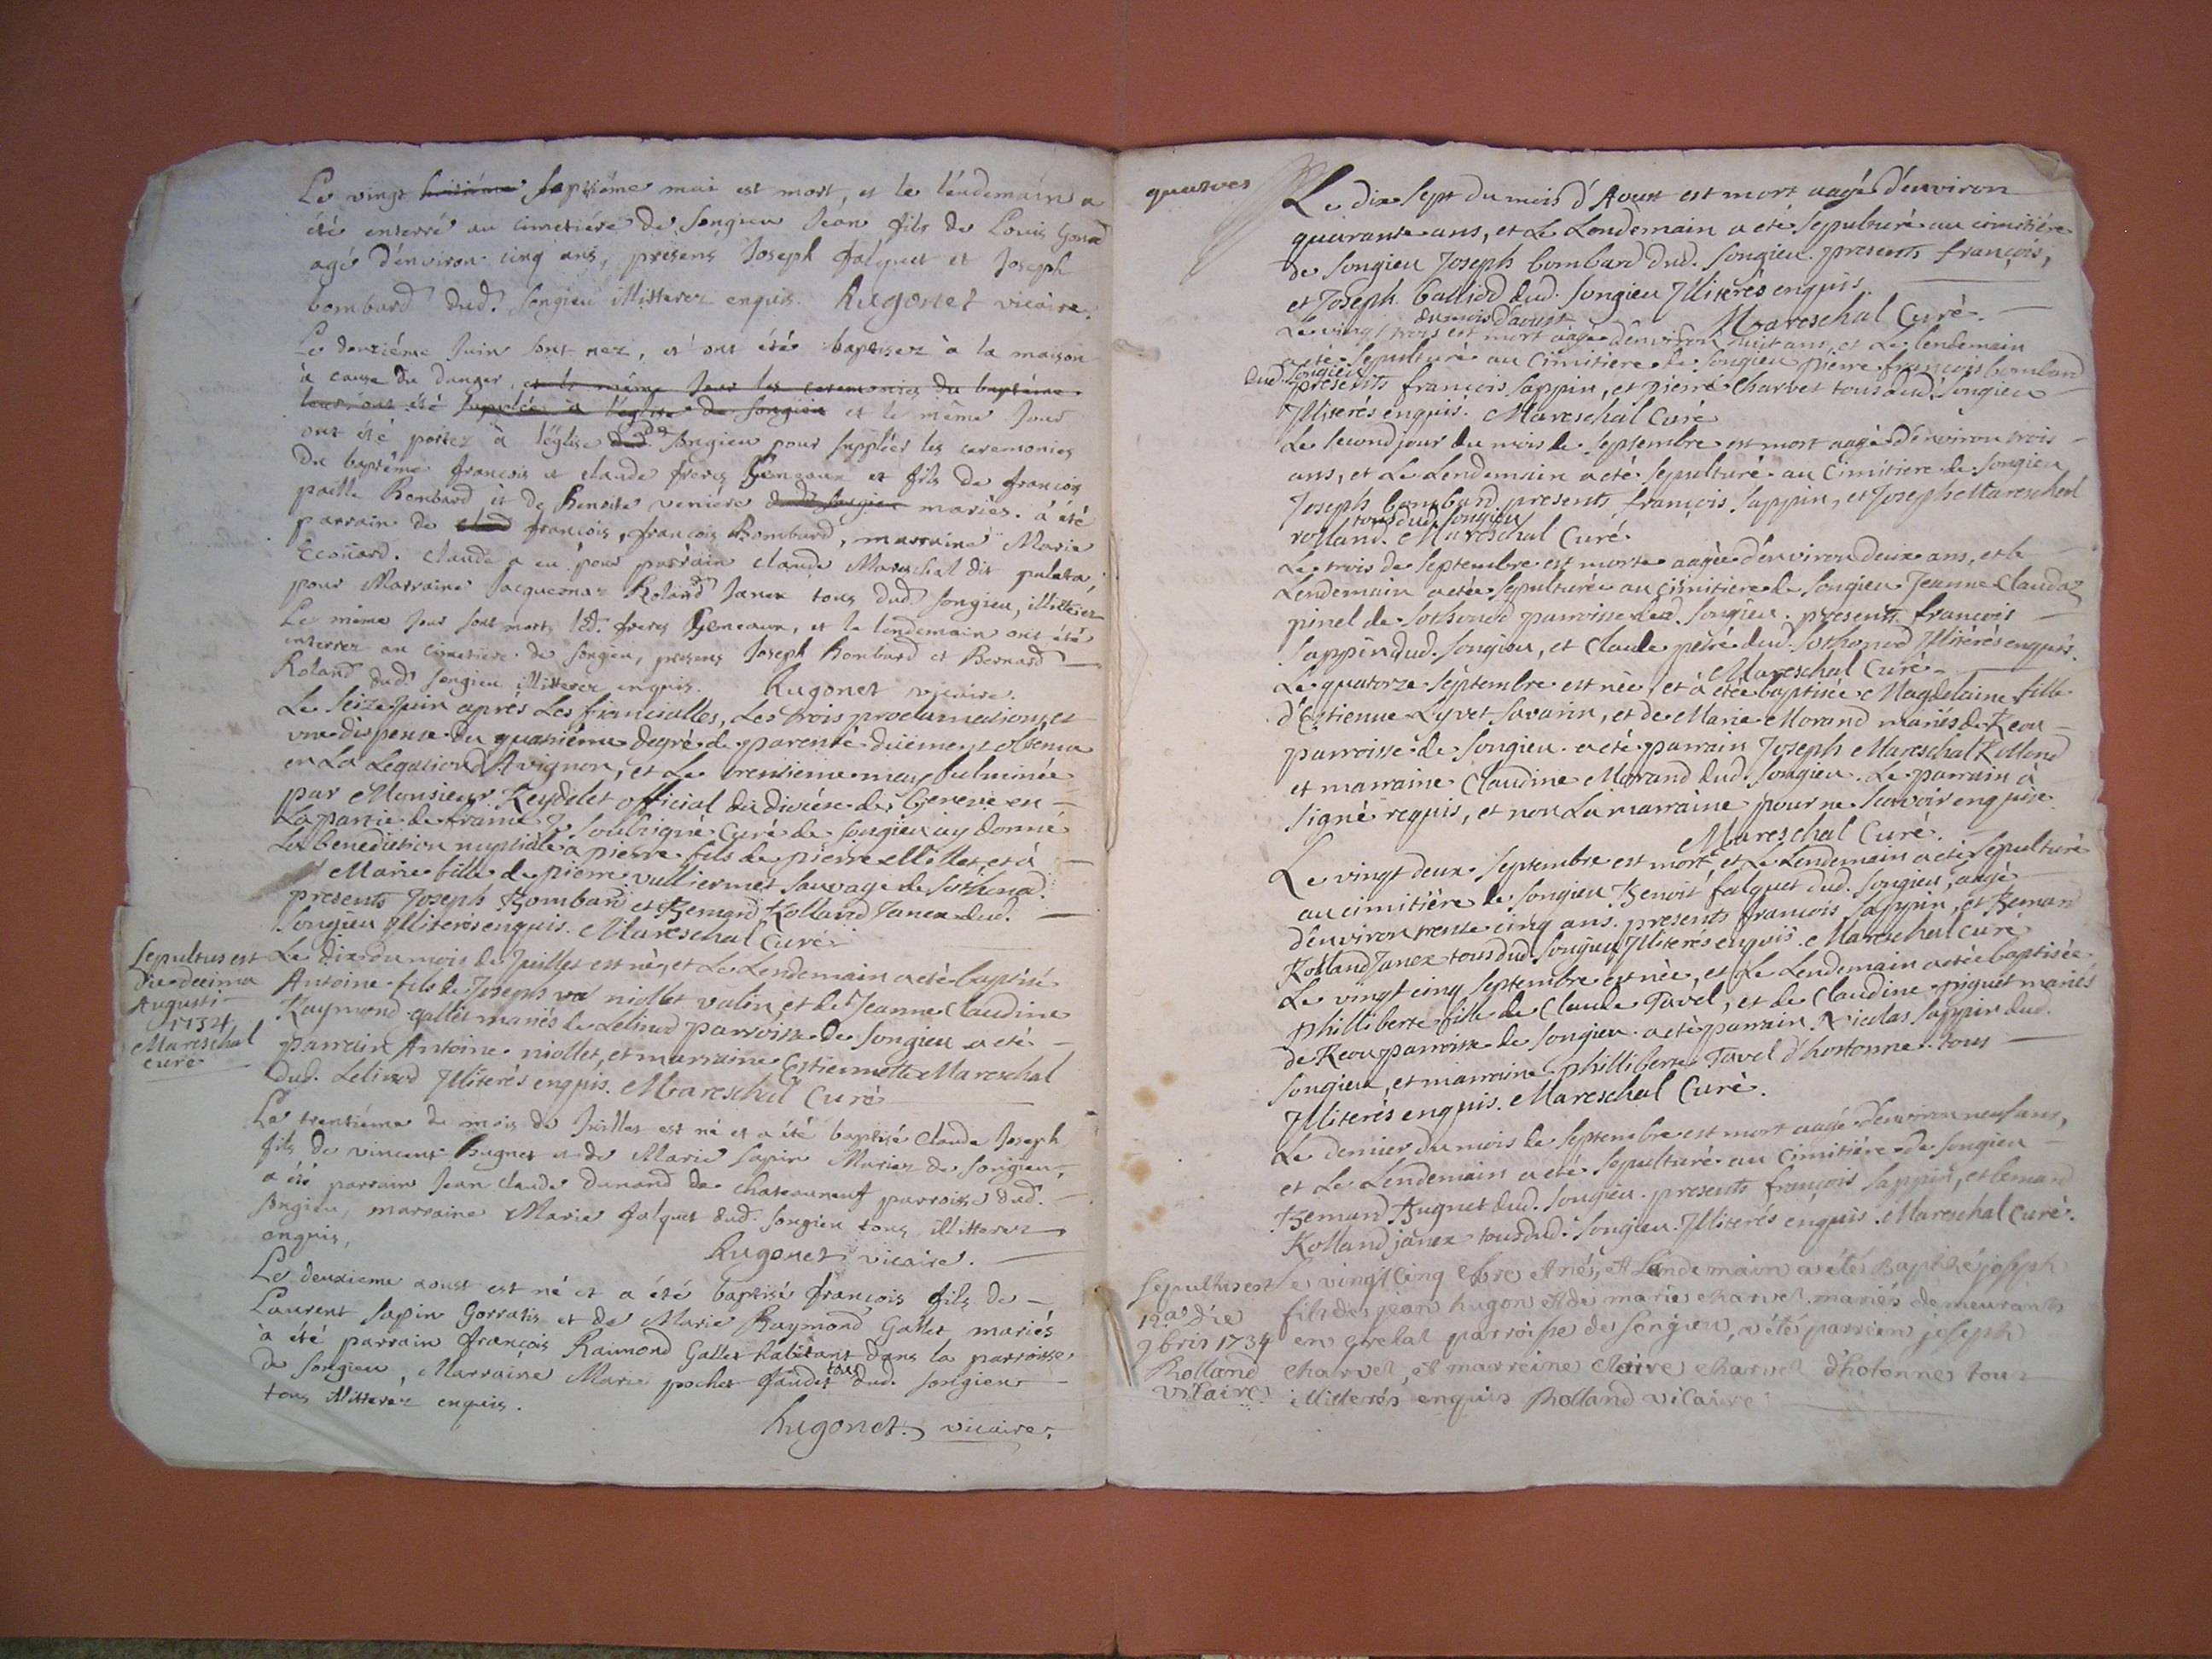 Le vingt huitiéme septiéme mai est mort, et le léndemain a
été enterré au cimetiére de Songieu Jean fils de Louis Gonod
agé d'énviron cinq ans, présens Joseph falquet et Joseph
bombard dud. Songieu illitterez enquis. Hugonet vicaire.
Le deuxiéme Juin sont nez, et ont été baptisez à la maison
à cause du danger, et le même Jour les ceremonies du baptéme
leur ont été suppléés à l'église de Songieu et le même Jour
ont été portez à léglise de Songieu pour suppléer les ceremonies
du baptême francois et claude freres Gemeaux et fils de francois
paille Bombard et de Benoite veniére dud. Songieu mariés. à été
parrain de claud françois, francois Bombard, marraine Marie
Ecoüard. claude a eu pour parrain claude Mareschal dit
pour Marraine Jacquemaz Roland Janex tous dud. Songieu, illitterez
Le même Jour sont morts léd. freres Gemeaux, et le lendemain ont été
enterrez au cimetiere de Songieu, présens Joseph Bombard et Bernard
Roland dud. Songieu illitterez enquis. Hugonet vicaire.
Le seize Juin aprés Les fiancialles, Les trois proclamations, et
vne dispense du quatriéme degré de parenté düement obtenue
en La Legation d'Avignon, et Le trentieme may fulminée
par Monsieur Reydelet official du diocése de Geneve en
La partie de france Je soubsigné Curé de Songieu ay donné
La benediction nuptiale a pierre fils de pierre Millet et à
Marie fille de pierre vulliermet Sauvage de Sothonod.
presents Joseph Bombard et Bernard Rolland Janex dud.
Songieu Jlliterés enquis. Mareschal Curé
Sepultus est
die decima
Augusti
1734
Mareschal
curé
Le dix du mois de Juillet est nè, et Le Lendemain a etè baptisé
Antoine fils de Joseph niollet valin, et de Jeanne Claudine
Raymond gallet mariés de Lelinod parroisse de Songieu a eté
parrain Antoine niollet, et marraine Estiennette Mareschal
dud. Lelinod Jlliterés enquis. Mareschal Curé
Le trentiéme du mois de Juillet est né et a été baptisé Claude Joseph
fils de vincent Hugnet et de Marie Sapin Mariez de Songieu,
a été parrain Jean claude Dunand de chateauneuf parroisse dud.
Songieu, marraine Marie falquet dud. Songieu tous illitterez
enquis, Hugonet vicaire.
Le deuxieme aoust est né et a été baptisé francois fils de
Laurent Sapin Gorratis et de Marie Raymond Gallet mariés
à été parrain francois Raimond Gallet habitant dans la parroisse
de Songieu, Marraine Marie pochet tous dud. Songieu
tous illitterez enquis.
Hugonet vicaire.
quatres
Le dix sept du mois d'Aoust est mort aagé d'environ
quarante ans, et Le Lendemain a eté sepulturé au cimitiére
de Songieu Joseph bombard dud. Songieu. presents françois,
et Joseph balliod dud. Songieu Jlliterés enquis.
Mareschal Curé.
du mois d'aoust
Le vingt trois est mort aagé d'environ huit ans, et Le lendemain
a eté sepulturé au Cimitiere de Songieu pierre françois bombard
dud. Songieu
presents françois Sappin, et pierre Charvet tous dud. Songieu
Jlliterés enquis. Mareschal Curé
Le second jour du mois de septembre est mort aagé d'environ trois
ans, et Le Lendemain a eté sepulturé au Cimitiere de Songieu
Joseph bombard. presents françois Sappin, et Joseph Mareschal
tous dud. Songieu
rolland. Mareschal Curé.
Le trois de septembre est morte aagée d'environ deux ans, et le
Lendemain a etée sepulturée au Cimitiere de Songieu Jeanne Claudaz
pinel de Sothonod parroisse dud. Songieu. presents françois
Sappin dud. Songieu, et Claude dud. Sothonod Jlliterés enquis.
Mareschal Curé.
Le quatorze septembre est née, et à etée baptisée Magdelaine fille
d'Estienne Lyvet Savarin, et de Marie Morand mariés de Reou
parroisse de Songieu. a eté parrain Joseph Mareschal Rolland
et marraine Claudine Morand dud. Songieu. Le parrain à
signé requis, et non La marraine pour ne Scavoir enquise.
Mareschal Curé.
Le vingt deux septembre est mort, et Le Lendemain a eté sepulturé
au cimitiére de Songieu Benoit falquet dud. Songieu, aagé
d'environ trente cinq ans. presents françois Sappin, et Bernard
Rolland Janex tous dud. Songieu Jlliterés enquis. Mareschal Curé
Le vingt cinq septembre est née, et Le Lendemain a etée baptisée
philliberte fille de Claude Tavel, et de Claudine piguet mariés
de Reou parroisse de Songieu. a eté parrain Nicolas Sappin dud.
Songieu, et marraine philliberte Tavel d'hostonne. tous
Jlliterés enquis. Mareschal Curé.
Le dernier du mois de septembre est mort aagé d'environ neuf ans,
et Le Lendemain a eté sepulturé au Cimitiére de Songieu
Bernard Hugnet dud. Songieu. presents françois Sappin, et bernard
Rolland janex tous dud. Songieu. Jlliterés enquis. Mareschal Curé.
Sepultus est
12a die
9bris 1734
Rolland
vicaire
Le vingt cinq 8bre est nés, et Landemain a étés Baptisé joseph
fils des jean hugon et de marie charvet, mariés demeurants
en grelat parroisse de Songieu, a étés parrien joseph
charvet, et marreine claire charvet d'hotonnes tous
illitterés enquis Rolland vicaire